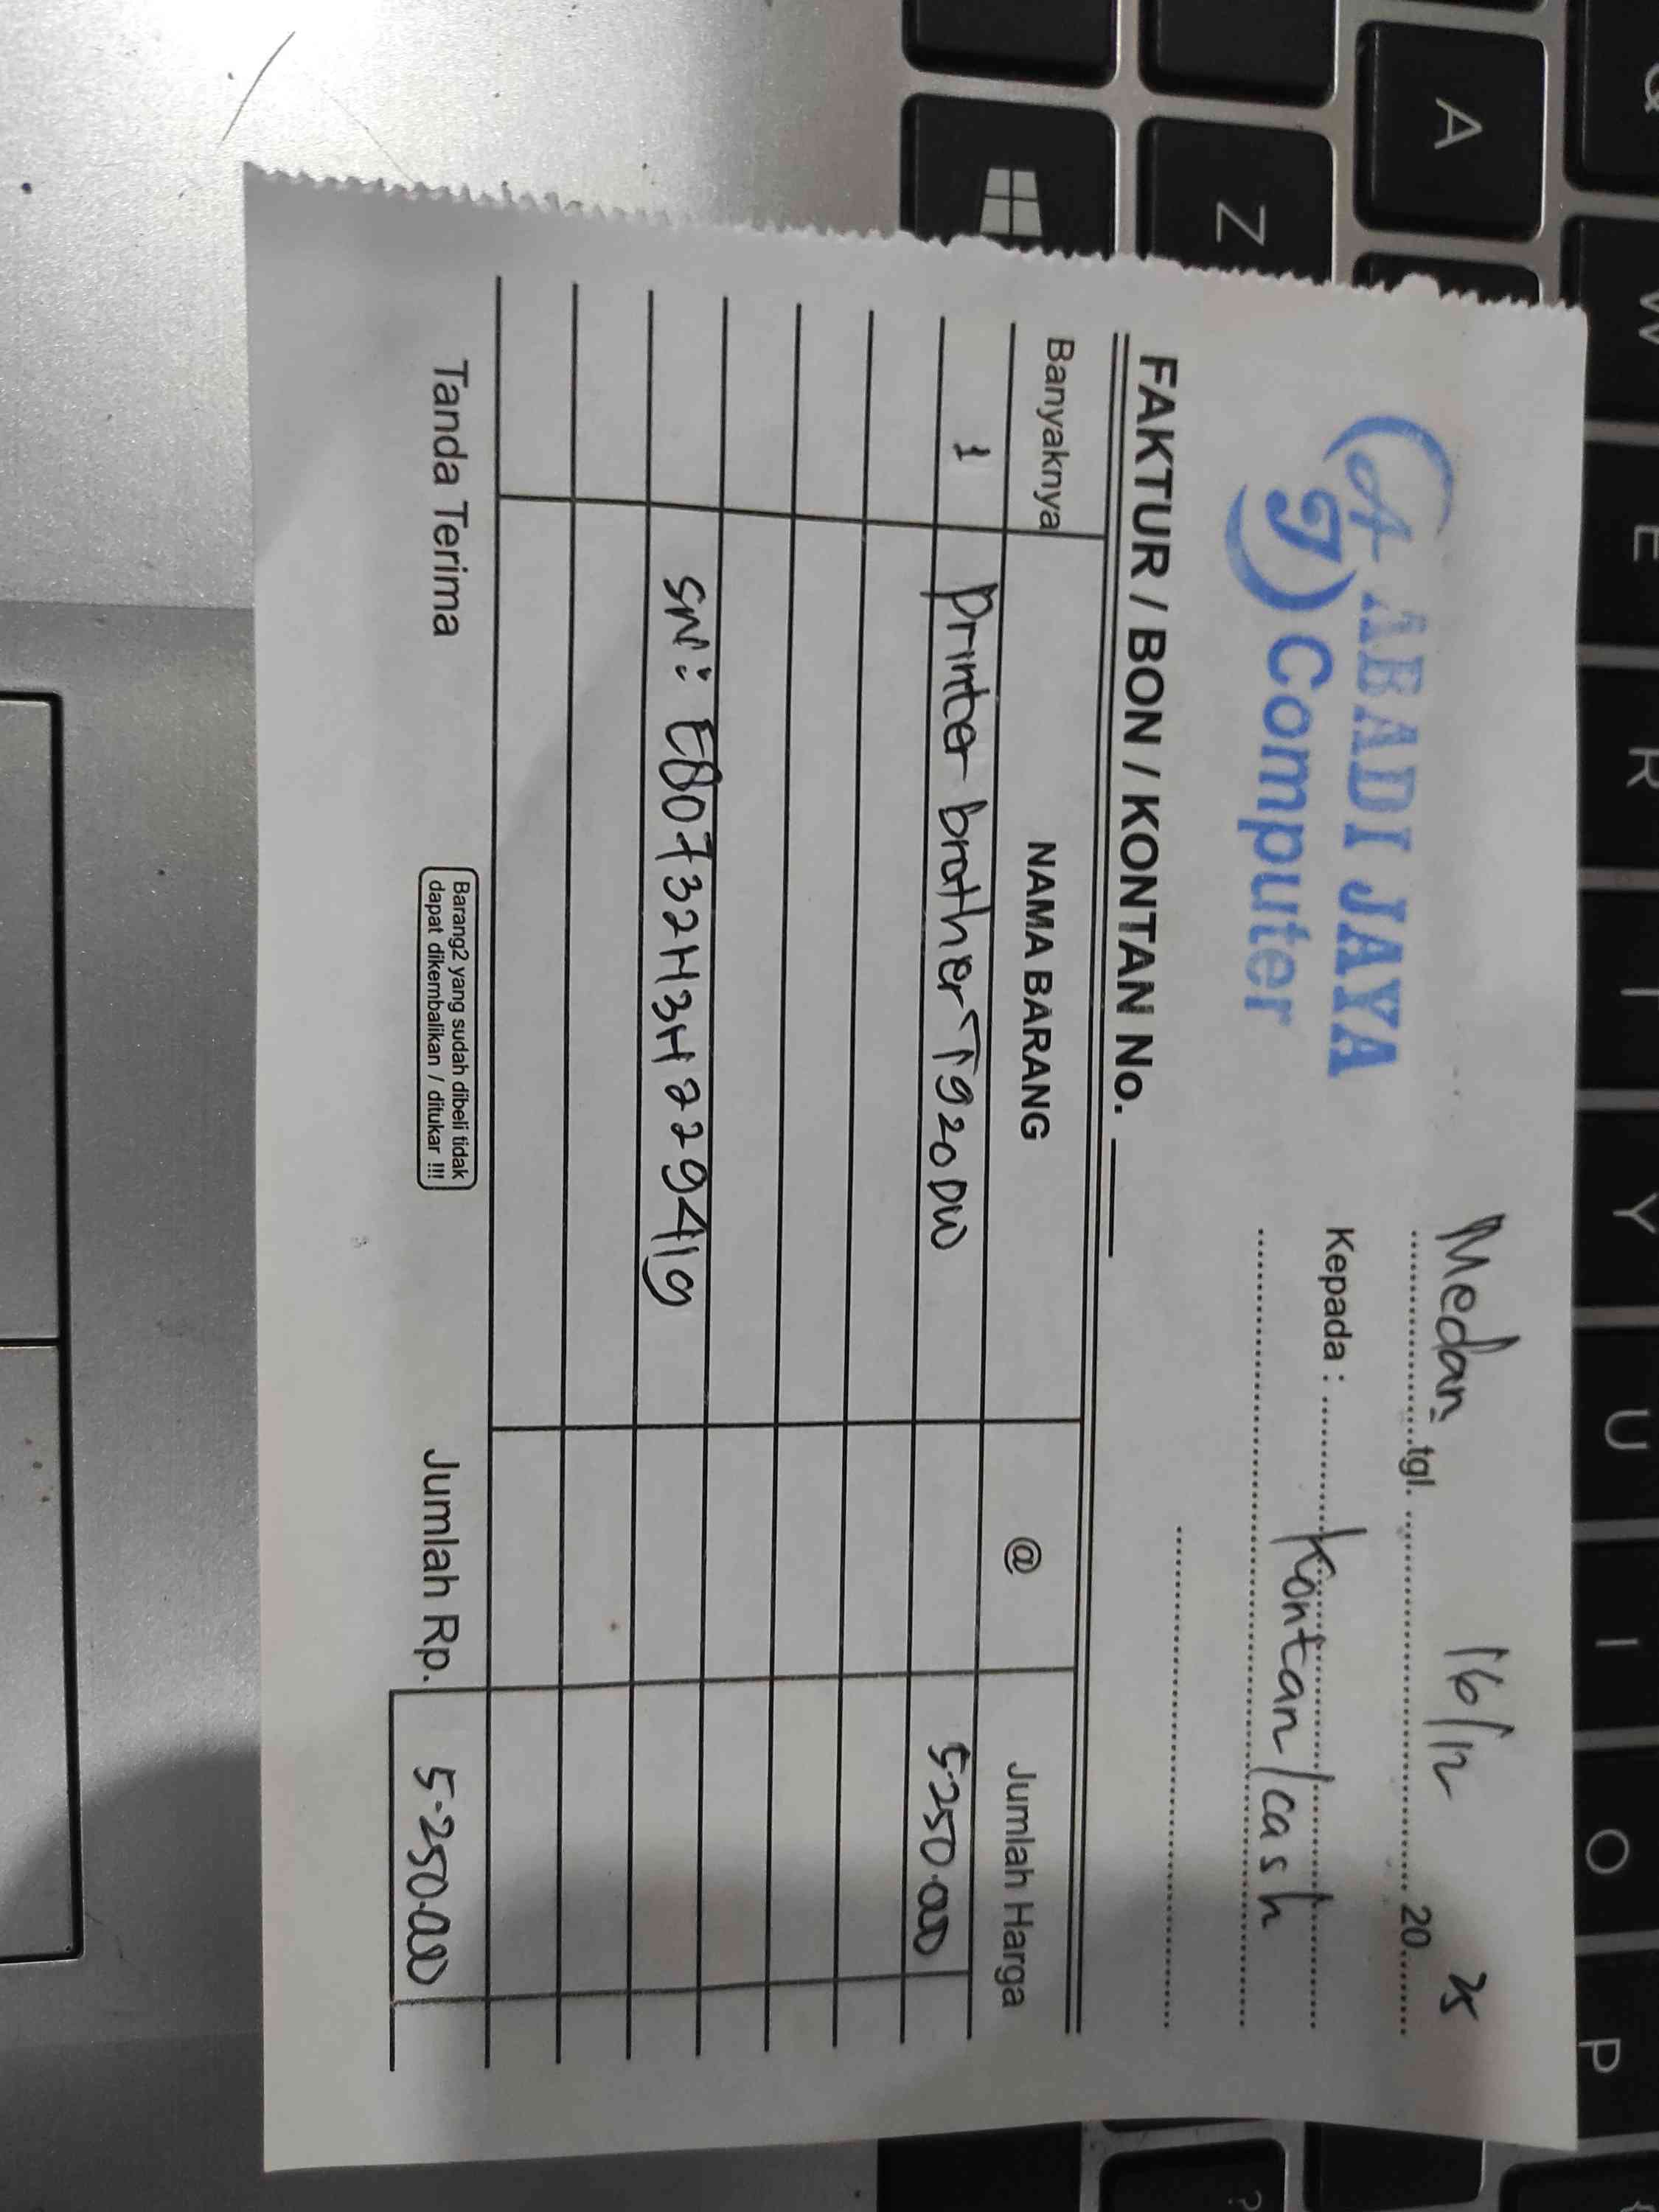 Medan tgl. 16/12 2025
AJ ABADI JAYA
Computer
Kepada : Kontan/cash
FAKTUR / BON / KONTAN No.
Banyaknya NAMA BARANG @ Jumlah Harga
1 Printer brother T920DW 5.250.000
SN: E80732H3H229419
Tanda Terima
Barang2 yang sudah dibeli tidak
dapat dikembalikan / ditukar !!!
Jumlah Rp. 5.250.000
Q W E R T Y U I O P
A
Z
?